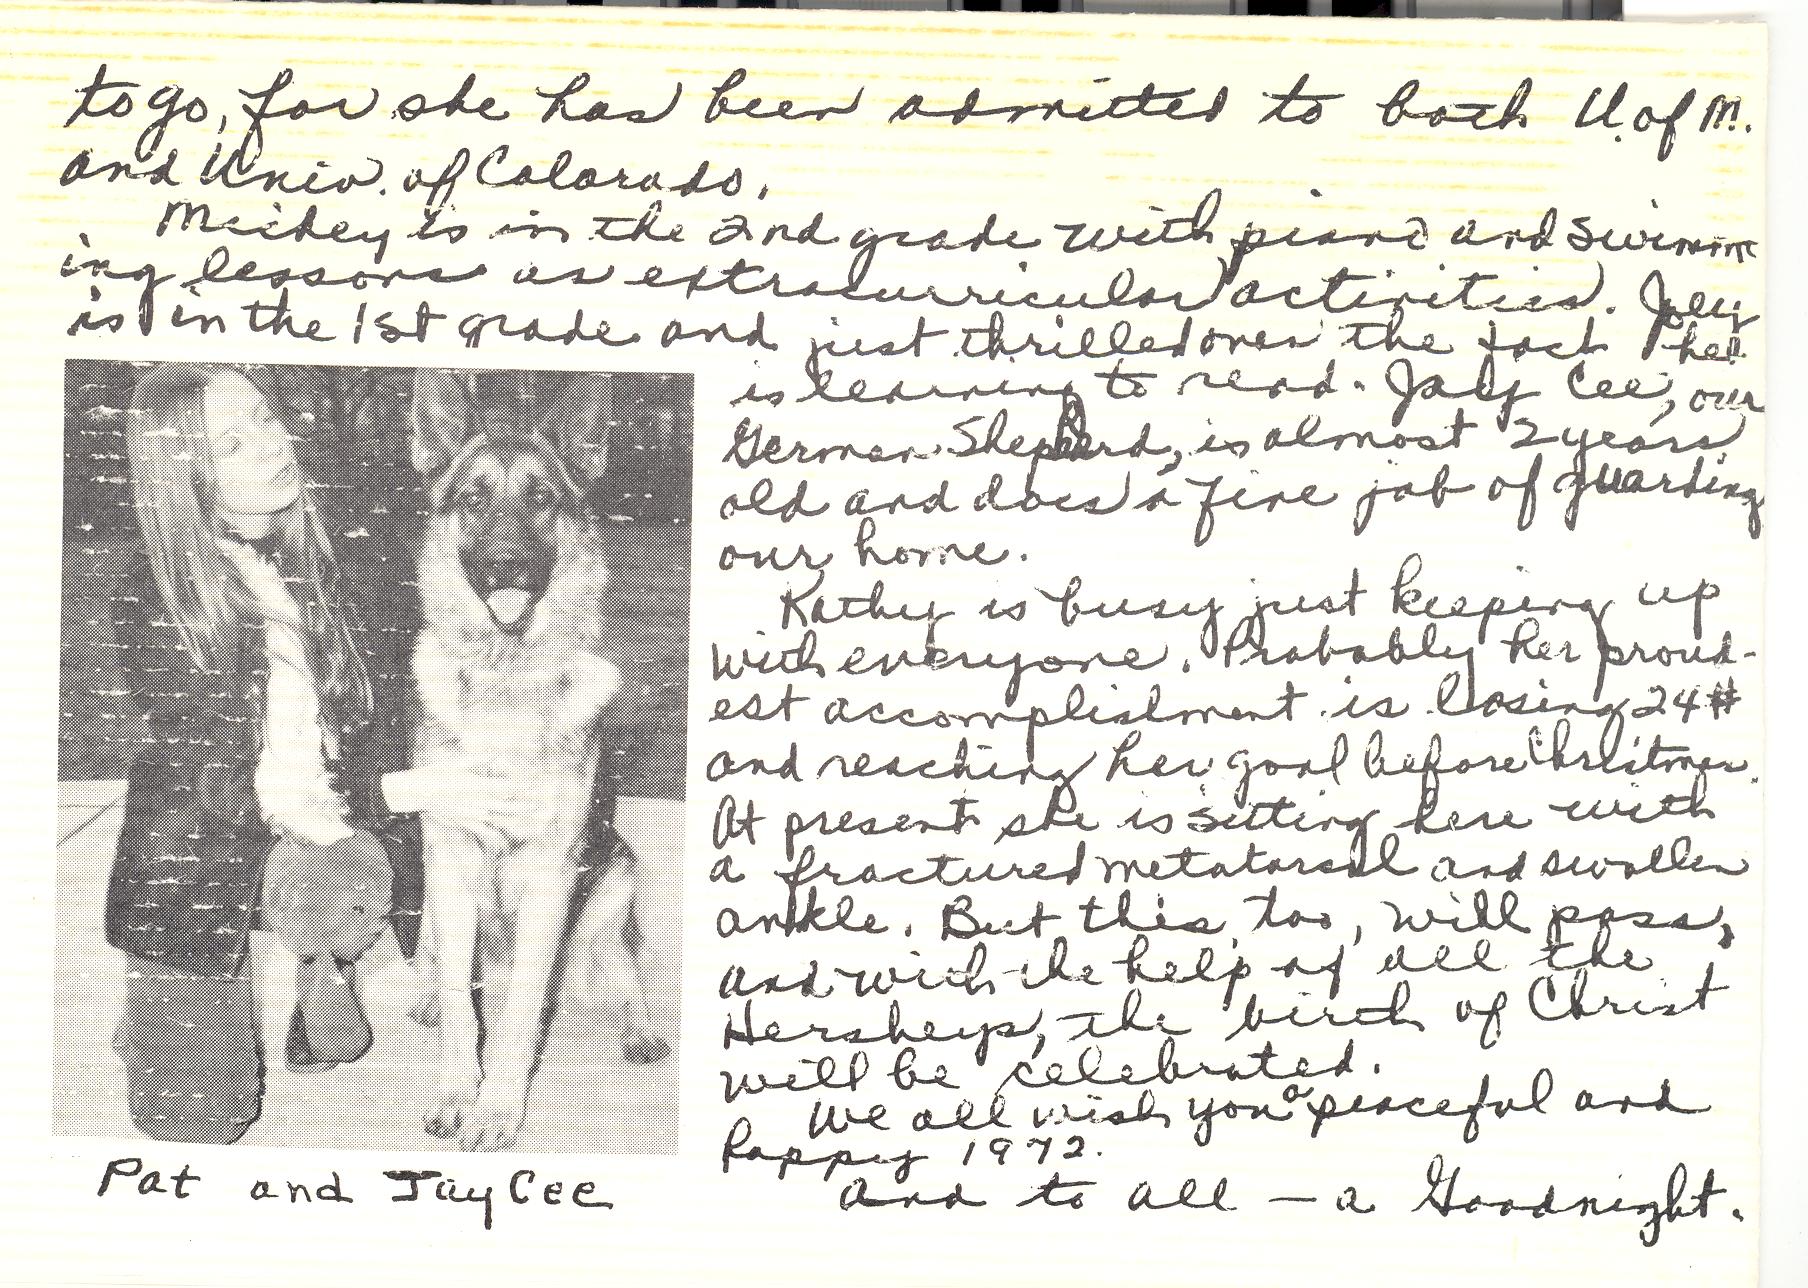 to go, for she has been admitted to both U. of M.
and Univ. of Colorado.
Mickey is in the 2nd grade with piano and swimm
ing lessons as extracurricular activities. Joey
is in the 1st grade and just thrilled over the fact he
is learning to read. Jay Cee, our
German Shepherd, is almost 2 years
old and does a fine job of guarding
our home.
Kathy is busy just keeping up
with everyone. Probably her proud-
est accomplishment is losing 24#
and reaching her goal before Christmas.
At present she is sitting here with
a fractured metatarsal and swollen
ankle. But this, too, will pass,
and with the help of all the
Hersheys, the birth of Christ
will be celebrated.
We all wish you a peaceful and
happy 1972.
and to all — a Goodnight.
Pat and Jay Cee